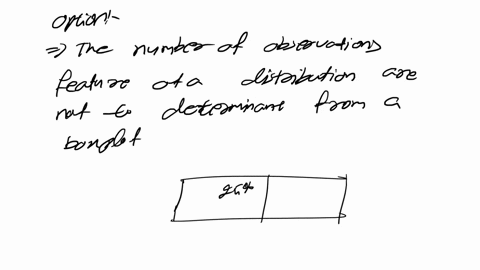 option:-
⇒ The number of observations
feature of a distribution are
not to determinant from a
boxplot
25%